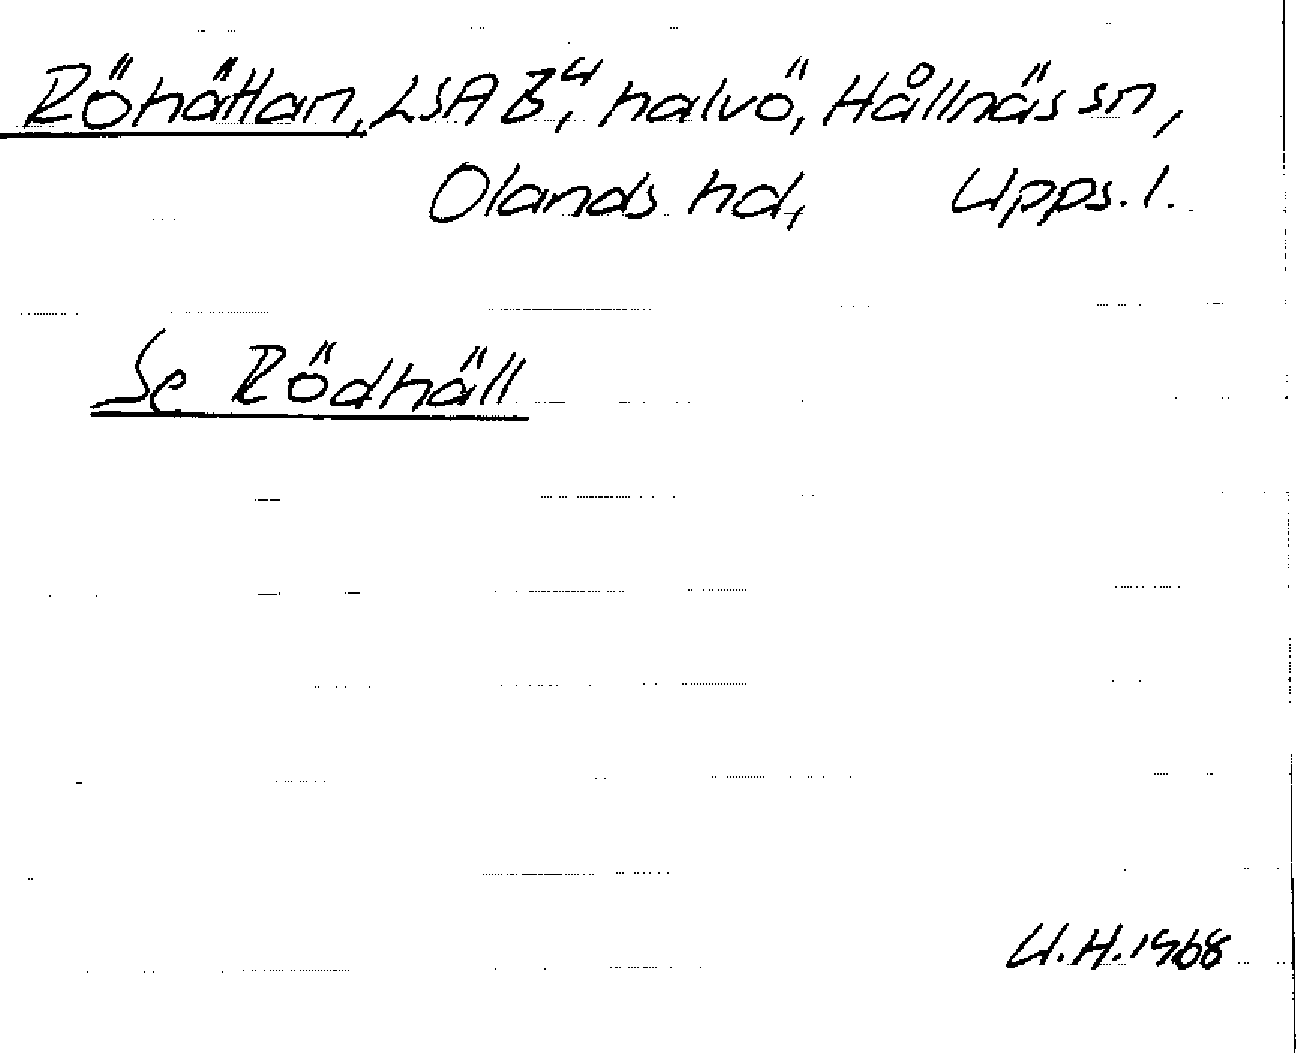 Röhättan, LSA B⁴, halvö, Hållnäs sn,
Olands hd, Upps. l.
Se Rödhäll
U.H. 1968